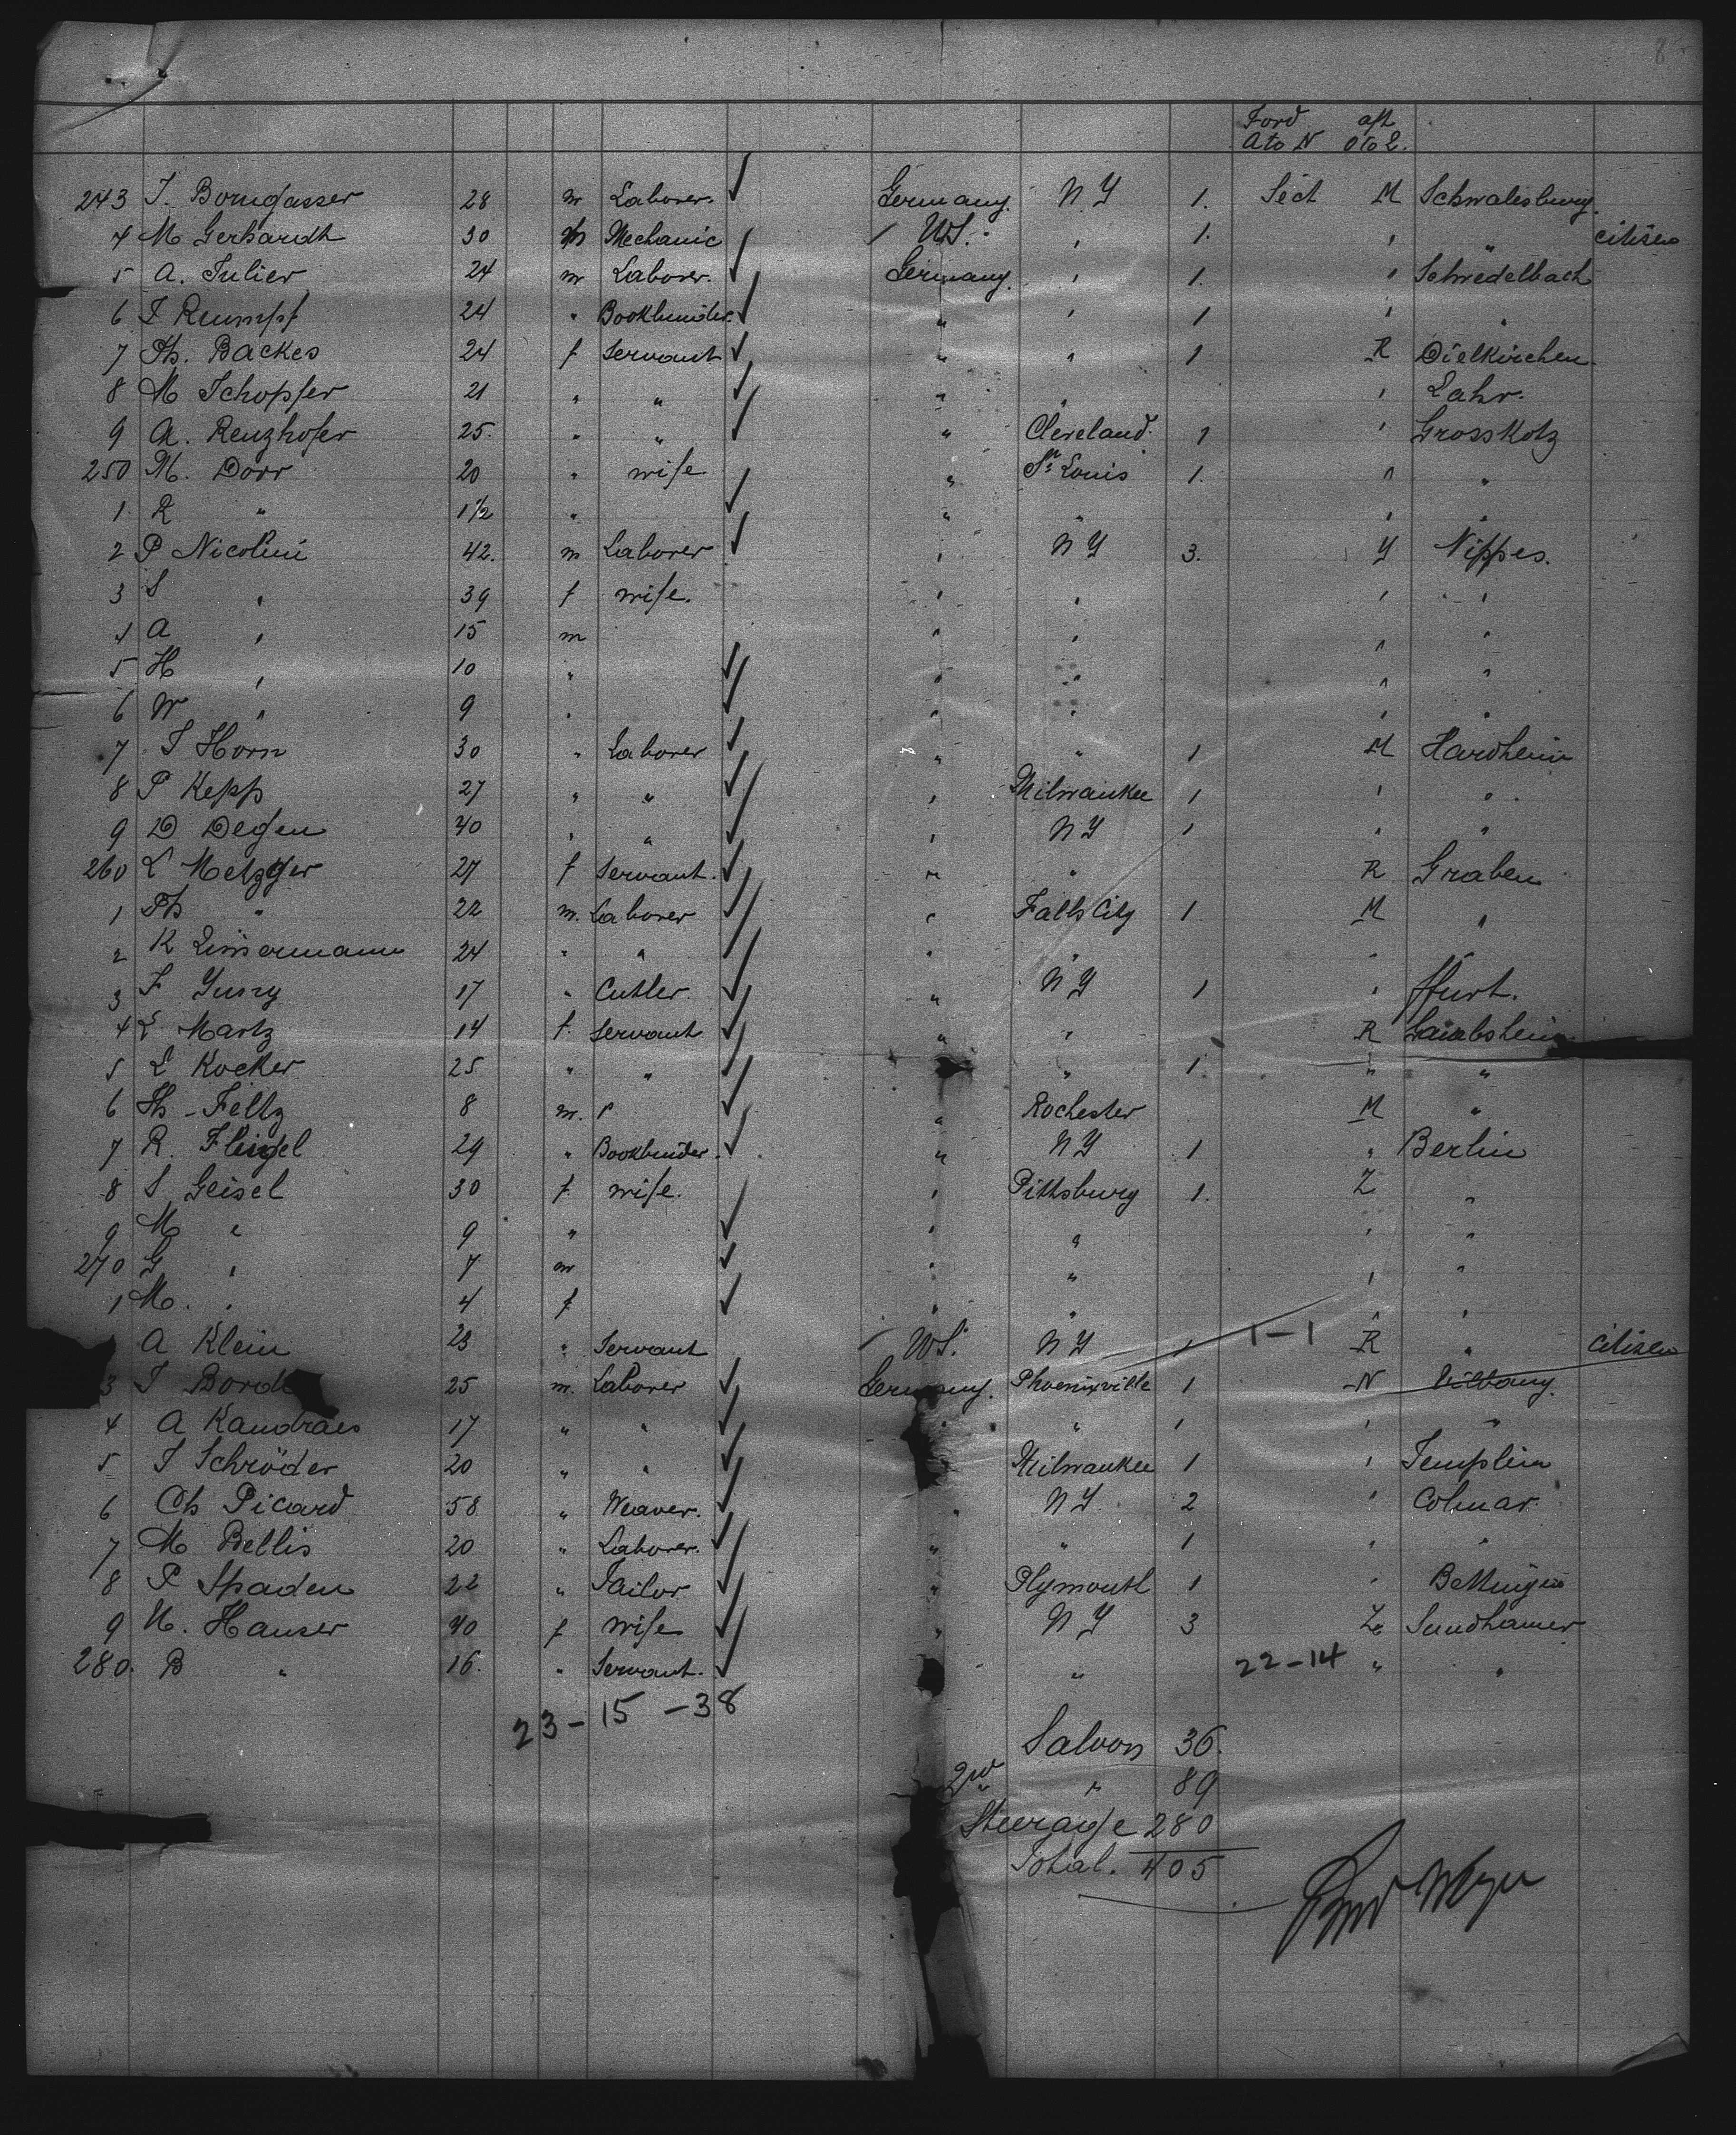 8
Ford aft
A to N O to Z.
243 J. Borngasser 28 m Laborer. Germany. NY 1. Sect M Schwalesburg.
4 M Gerhardt 30 m Mechanic / US. " 1. " " citisen
5 A. Julier 24 m Laborer. Germany. " 1. " Schwedelbach
6 J Rumpf 24 " Bookbinder. " " 1 " "
7 Ph. Backes 24 f Servant " " 1 R Dielkirchen
8 M Schopfer 21 " " " " " Lahr.
9 A. Renzhofer 25. " " " Cleveland. 1 " Grosskotz
250 M. Dorr 20 " wife " St Louis 1. " "
1 R " 1 1/2 " " " " "
2 P Nicolini 42. m Laborer " NY 3. Y Nippes.
3 S " 39 f wife. " " " "
4 A " 15 m " " " "
5 H " 10 " " " " "
6 W " 9 " " " " "
7 J Horn 30 " Laborer " " 1 M Hardheim
8 P Kepp 27 " " " Milwaukee 1 " "
9 D Degen 40 " " " NY 1 " "
260 L Metzger 27 f Servant. " " R Graben
1 Ph " 22 m. Laborer " Falls City 1 M "
2 K Zimmermann 24 " " " " "
3 F 17 " Cutler. " NY 1 " ffurt.
4 L Martz 14 f. Servant " " R
5 L Kocker 25 " " " " 1 " "
6 Th - Feltz 8 m. " Rochester M "
7 R. Fleigel 29 " Bookbinder. " NY 1 " Berlin
8 S Geisel 30 f wife. " Pittsburg 1. Z "
9 M " 9 " " " " "
270 G " 7 m " " " "
1 M. " 4 f " " " "
A Klein 23 " Servant / US. NY 1 1-1 R " Citisen
3 J 25 m. Laborer Germany. Phoenixville 1 N
4 A Kandraes 17 " " " " 1 " "
5 J Schröder 20 " " Milwaukee 1 " Templin
6 Ch Picard 58 " Weaver. " NY 2 " Colmar.
7 M Bellis 20 " Laborer. " " 1 " "
8 P Spaden 22 " Tailor " Plymouth 1 " Bettingen
9 M. Hauser 40 f wife " NY 3 Z Sundhamer
280. B " 16. " Servant. " 22-14 " "
23 - 15 - 38
Saloon 36.
2nd " 89
Steerage 280
Total. 405